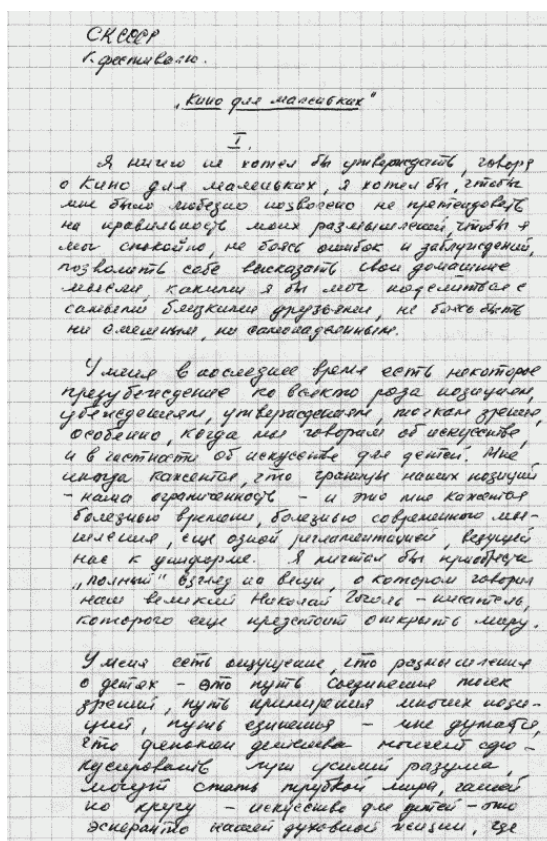 СК СССР
К фестивалю.
„Кино для маленьких"
I.
Я ничего не хотел бы утверждать, говоря
о Кино для маленьких, я хотел бы, чтобы
мне было любезно позволено не претендовать
на правильность моих размышлений, чтобы я
мог спокойно, не боясь ошибок и заблуждений,
позволить себе высказать свои домашние
мысли, какими я бы мог поделиться с
самыми близкими друзьями, не боясь быть
ни смешным, ни самонадеянным.
У меня в последнее время есть некоторое
предубеждение ко всякого рода позициям,
убеждениям, утверждениям, точкам зрения,
особенно, когда мы говорим об искусстве,
и в частности об искусстве для детей. Мне
иногда кажется, что границы наших позиций
– наша ограниченность – и это мне кажется
болезнью времени, болезнью современного мы-
шления, еще одной регламентацией, ведущей
нас к униформе. Я мечтал бы приобрести
„полный" взгляд на вещи, о котором говорил
нам великий Николай Гоголь – писатель,
которого еще предстоит открыть миру.
У меня есть ощущение, что размышления
о детях – это путь соединения точек
зрений, путь примирения многих пози-
ций, путь единенья – мне думается,
что феномен детства может сфо-
кусировать лучи усилий разума,
могут стать трубкой мира,
по кругу – искусство для детей – это
эсперанто нашей духовной жизни, где